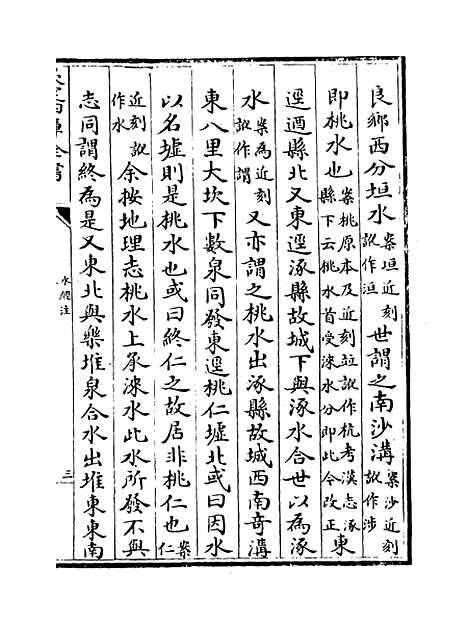 良鄉西分垣水案垣近刻訛作洹世謂之南沙溝案沙近刻訛作涉
即桃水也案桃原本及近刻竝訛作杭考漢志涿縣下云桃水首受淶水分即此今改正東
逕遒縣北又東逕涿縣故城下與涿水合世以為涿
水案為近刻訛作謂又亦謂之桃水出涿縣故城西南奇溝
東八里大坎下數泉同發東逕桃仁墟北或曰因水
以名墟則是桃水也或曰終仁之故居非桃仁也案仁
近刻訛作水余按地理志桃水上承淶水此水所發不與
志同謂終為是又東北與樂堆泉合水出堆東東南
水經注
三